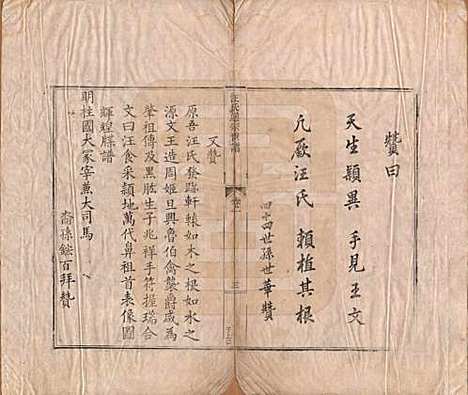 贊曰
天生頴異 手見王文
凡厥汪氏 賴植其根
四十四世孫世華贊
汪氏
卷一
三
又贊
原吾汪氏發跡軒轅如木之根如水之
源文王造周姬旦興魯伯禽襲爵咸爲
肇祖傳及黑肱生子兆祥手符握瑞合
文曰汪食采潁地萬代鼻祖首表像圖
輝煌牒譜
明柱國大冢宰兼大司馬
裔孫鋐百拜贊